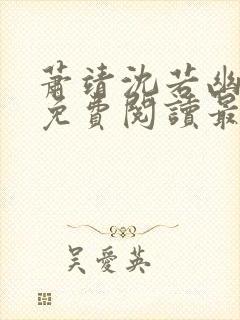 蕭靖沈若幽
免費閱讀最
吴愛英